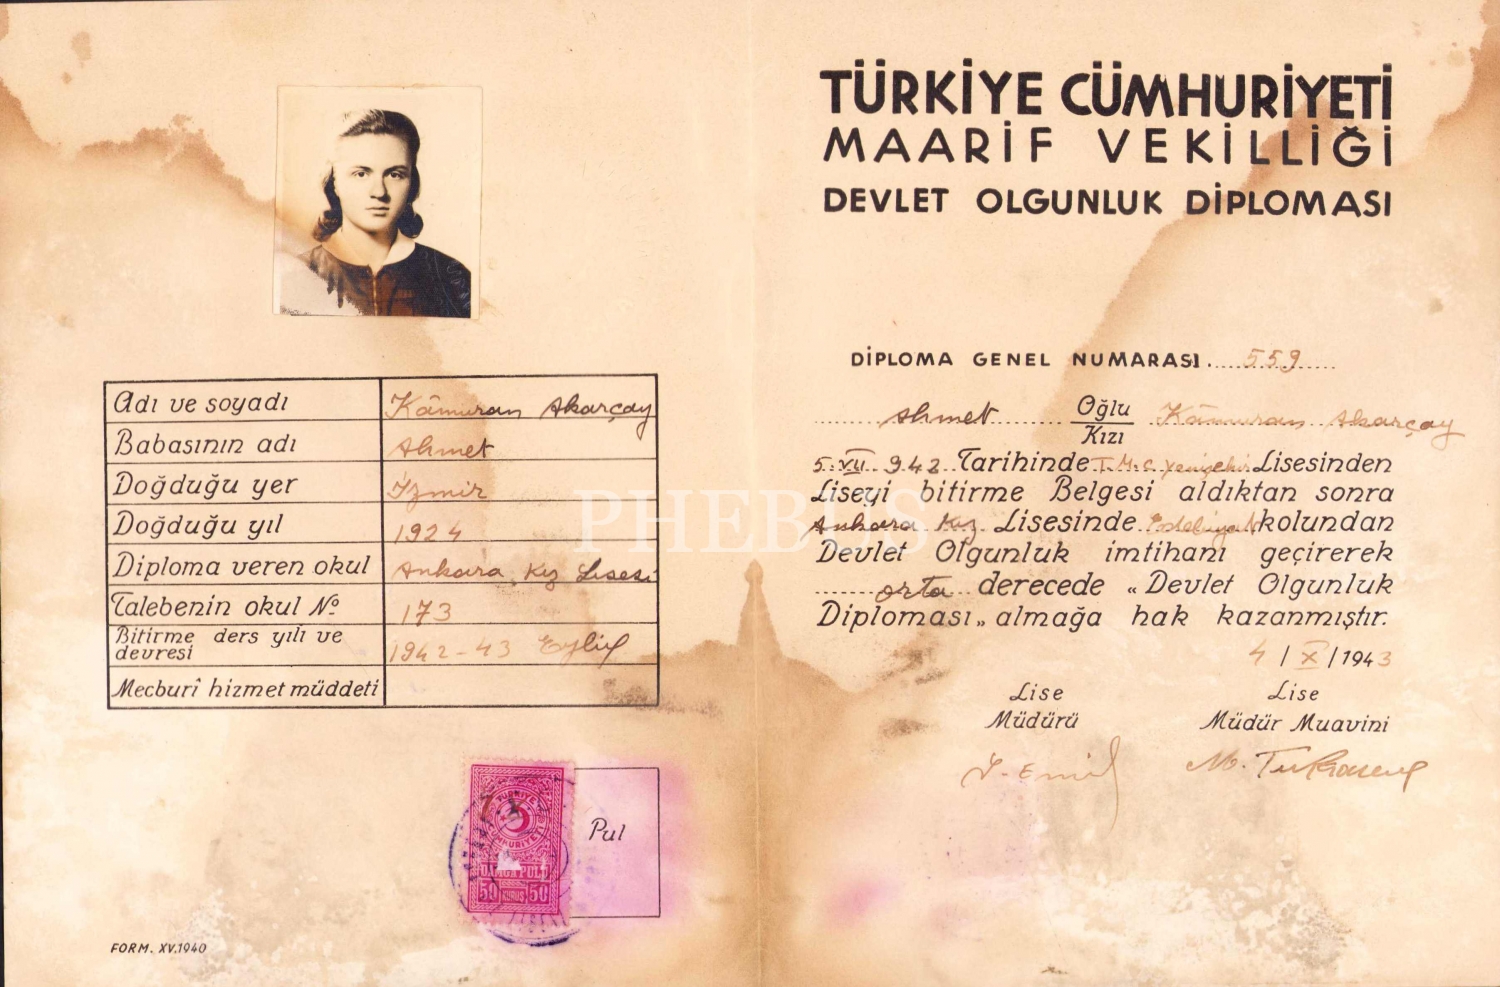 Adı ve soyadı Kâmuran Akarçay
Babasının adı Ahmet
Doğduğu yer İzmir
Doğduğu yıl 1924
Diploma veren okul Ankara Kız Lisesi
Talebenin okul No 173
Bitirme ders yılı ve devresi 1942-43 Eylül
Mecburî hizmet müddeti
TÜRKİYE CUMHURİYETİ
DAMGA PULU
50 KURUŞ 50
Pul
FORM. XV.1940
TÜRKİYE CÜMHURİYETİ
MAARİF VEKİLLİĞİ
DEVLET OLGUNLUK DİPLOMASI
DİPLOMA GENEL NUMARASI 559
Ahmet Oğlu Kızı Kâmuran Akarçay
5.VII.942 Tarihinde T.M.C Yenişehir Lisesinden
Liseyi bitirme Belgesi aldıktan sonra
Ankara Kız Lisesinde Edebiyat kolundan
Devlet Olgunluk imtihanı geçirerek
orta derecede „Devlet Olgunluk
Diploması„ almağa hak kazanmıştır.
4/X/1943
Lise Müdürü
Lise Müdür Muavini
PHEBUS